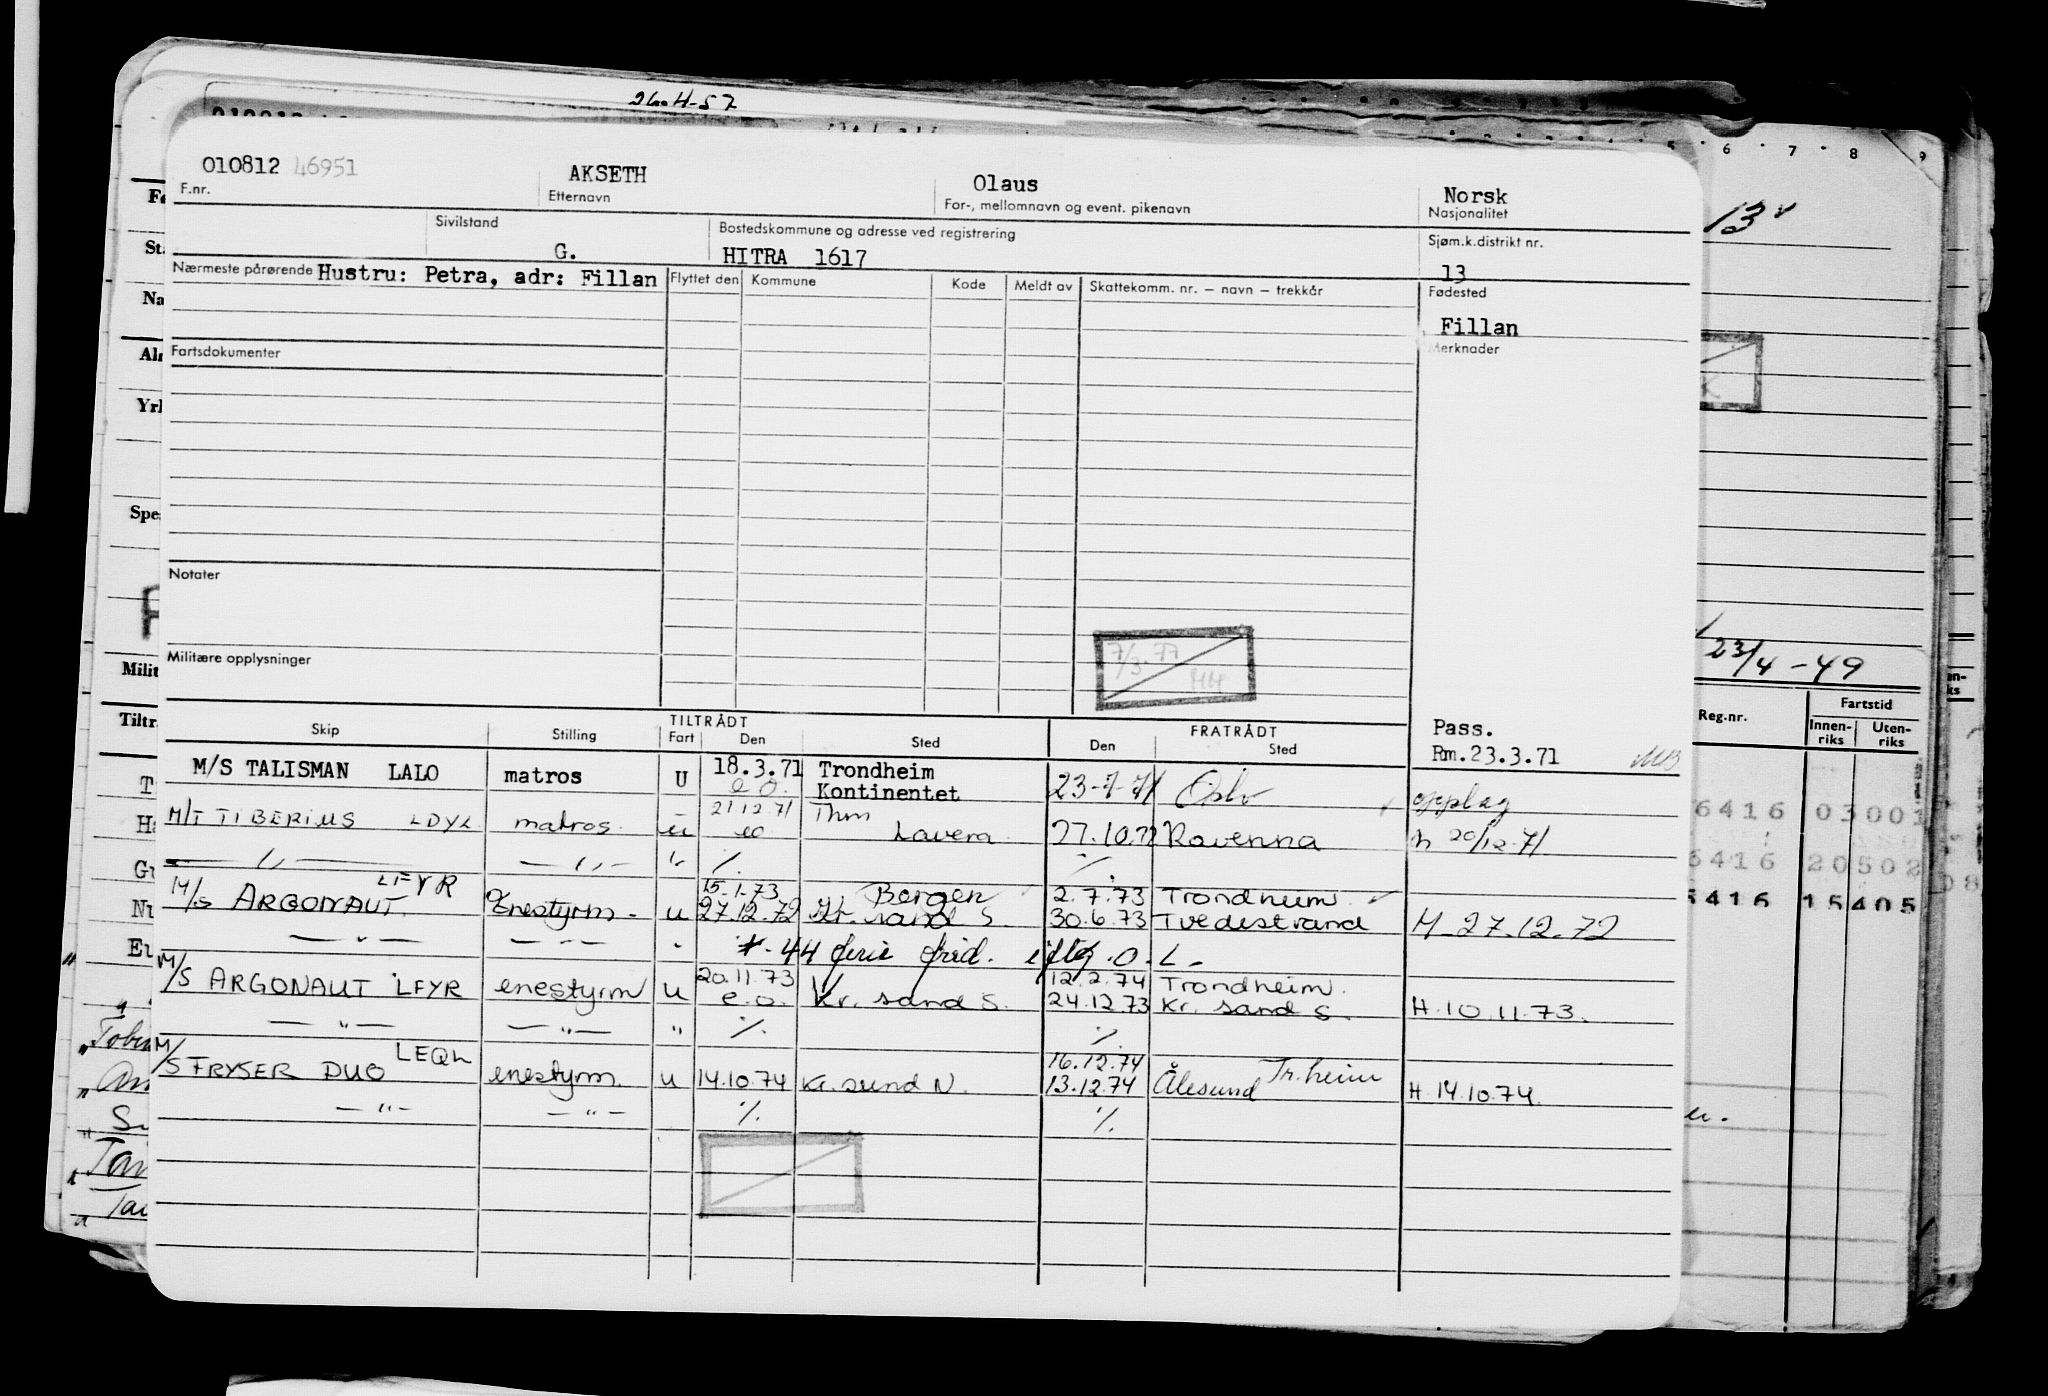 26.4-57
5 6 7 8 9
010812 46951 AKSETH Olaus Norsk
F.nr. Etternavn For-, mellomnavn og event. pikenavn Nasjonalitet
13
Sivilstand Bostedskommune og adresse ved registrering Sjøm.k.distrikt nr.
G. HITRA 1617 13
Nærmeste pårørende Hustru: Petra, adr: Fillan Flyttet den Kommune Kode Meldt av Skattekomm. nr. – navn – trekkår Fødested
Fillan
Fartsdokumenter Merknader
Notater
7/3.77
HH
Militære opplysninger
23/4-49
Skip Stilling TILTRÅDT FRATRÅDT Pass.
Fart Den Sted Den Sted
Reg.nr. Fartstid
Innen-riks Uten-riks
M/S TALISMAN LALO matros U 18.3.71 Trondheim Rm.23.3.71 MB
e.o. Kontinentet 23-7-71 Oslo opplag
M/T TIBERIUS LDYL matros u 21.12.71 Thm
eo Lavera 27.10.72 Ravenna h 20/12-71
— " — — " — " ./. ./.
M/S ARGONAUT LFYR Enestyrm. u 15.1.73 Bergen 2.7.73 Trondheim
27.12.72 Kr. sand S. 30.6.73 Tvedestrand H-27.12.72
— " — — " — " 44 ferie frid. iflg. O.L-
M/S ARGONAUT LFYR enestyrm u 20.11.73 12.2.74 Trondheim.
e.o. Kr. sand S. 24.12.73 Kr. sand S. H.10.11.73.
— " — — " — " ./. ./.
M/S FRYSER DUO LEQL enestyrm. u 14.10.74 Kr.sund N. 16.12.74 Tr.heim
13.12.74 Ålesund H.14.10.74.
— " — — " — ./. ./.
6416 03001
6416 20502
6416 15405